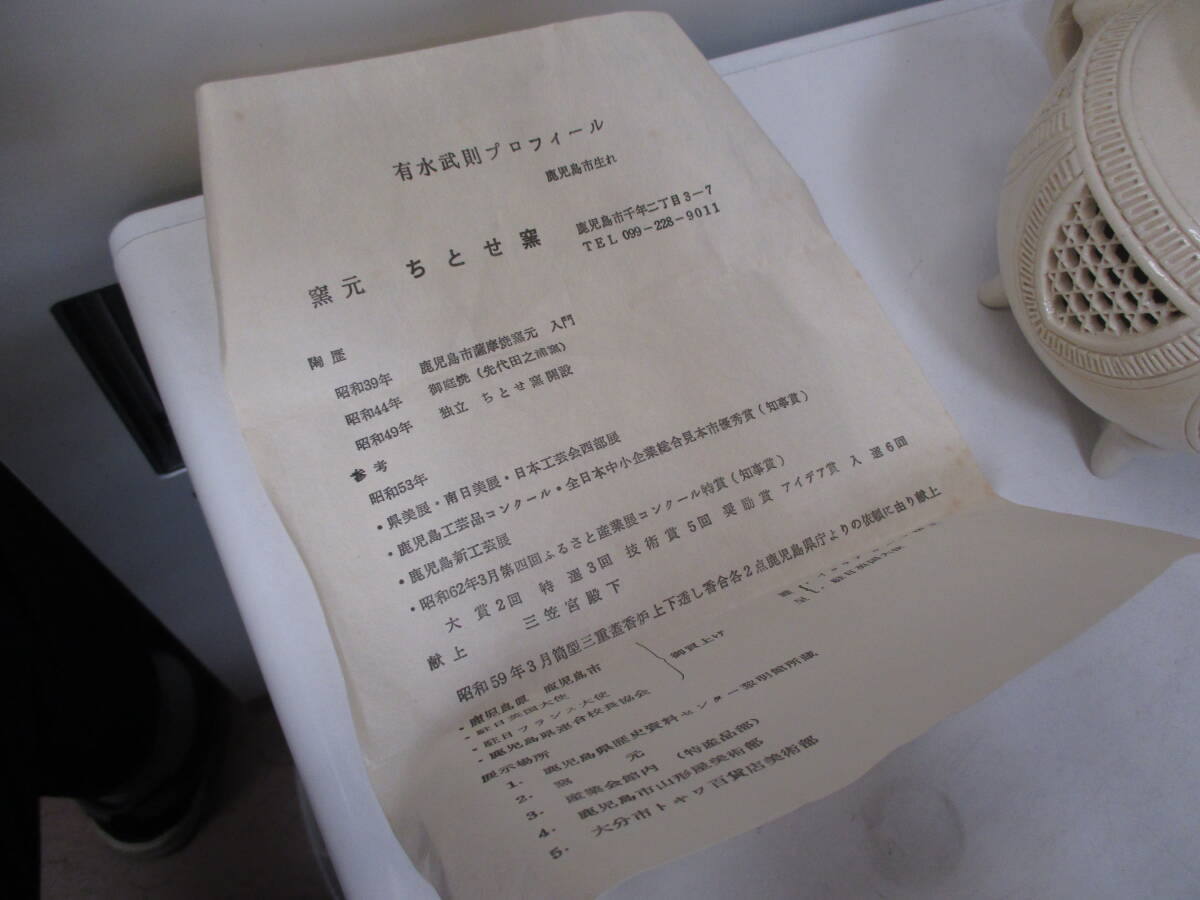 有水武則プロフィール
鹿児島市生れ
窯元 ちとせ窯
鹿児島市千年二丁目3-7
TEL 099-228-9011
陶歴
昭和39年 鹿児島市薩摩焼窯元 入門
昭和44年 御庭焼(先代田之浦窯)
昭和49年 独立 ちとせ窯開設
参考
昭和53年
・県美展・南日美展・日本工芸会西部展
・鹿児島工芸品コンクール・全日本中小企業総合見本市優秀賞(知事賞)
・鹿児島新工芸展
・昭和62年3月第四回ふるさと産業展コンクール特賞(知事賞)
大賞2回 特選3回 技術賞5回 奨励賞 アイデア賞 入選6回
献上 三笠宮殿下
昭和59年3月筒型三重蓋香炉上下透し香合各2点鹿児島県庁よりの依頼に由り献上
・鹿児島県 鹿児島市
・駐日英国大使
・駐日フランス大使
・鹿児島県連合校長協会
御買上げ
展示場所
1. 鹿児島県歴史資料センター黎明館所蔵
2. 窯元
3. 産業会館内(特産品部)
4. 鹿児島市山形屋美術部
5. 大分市トキワ百貨店美術部